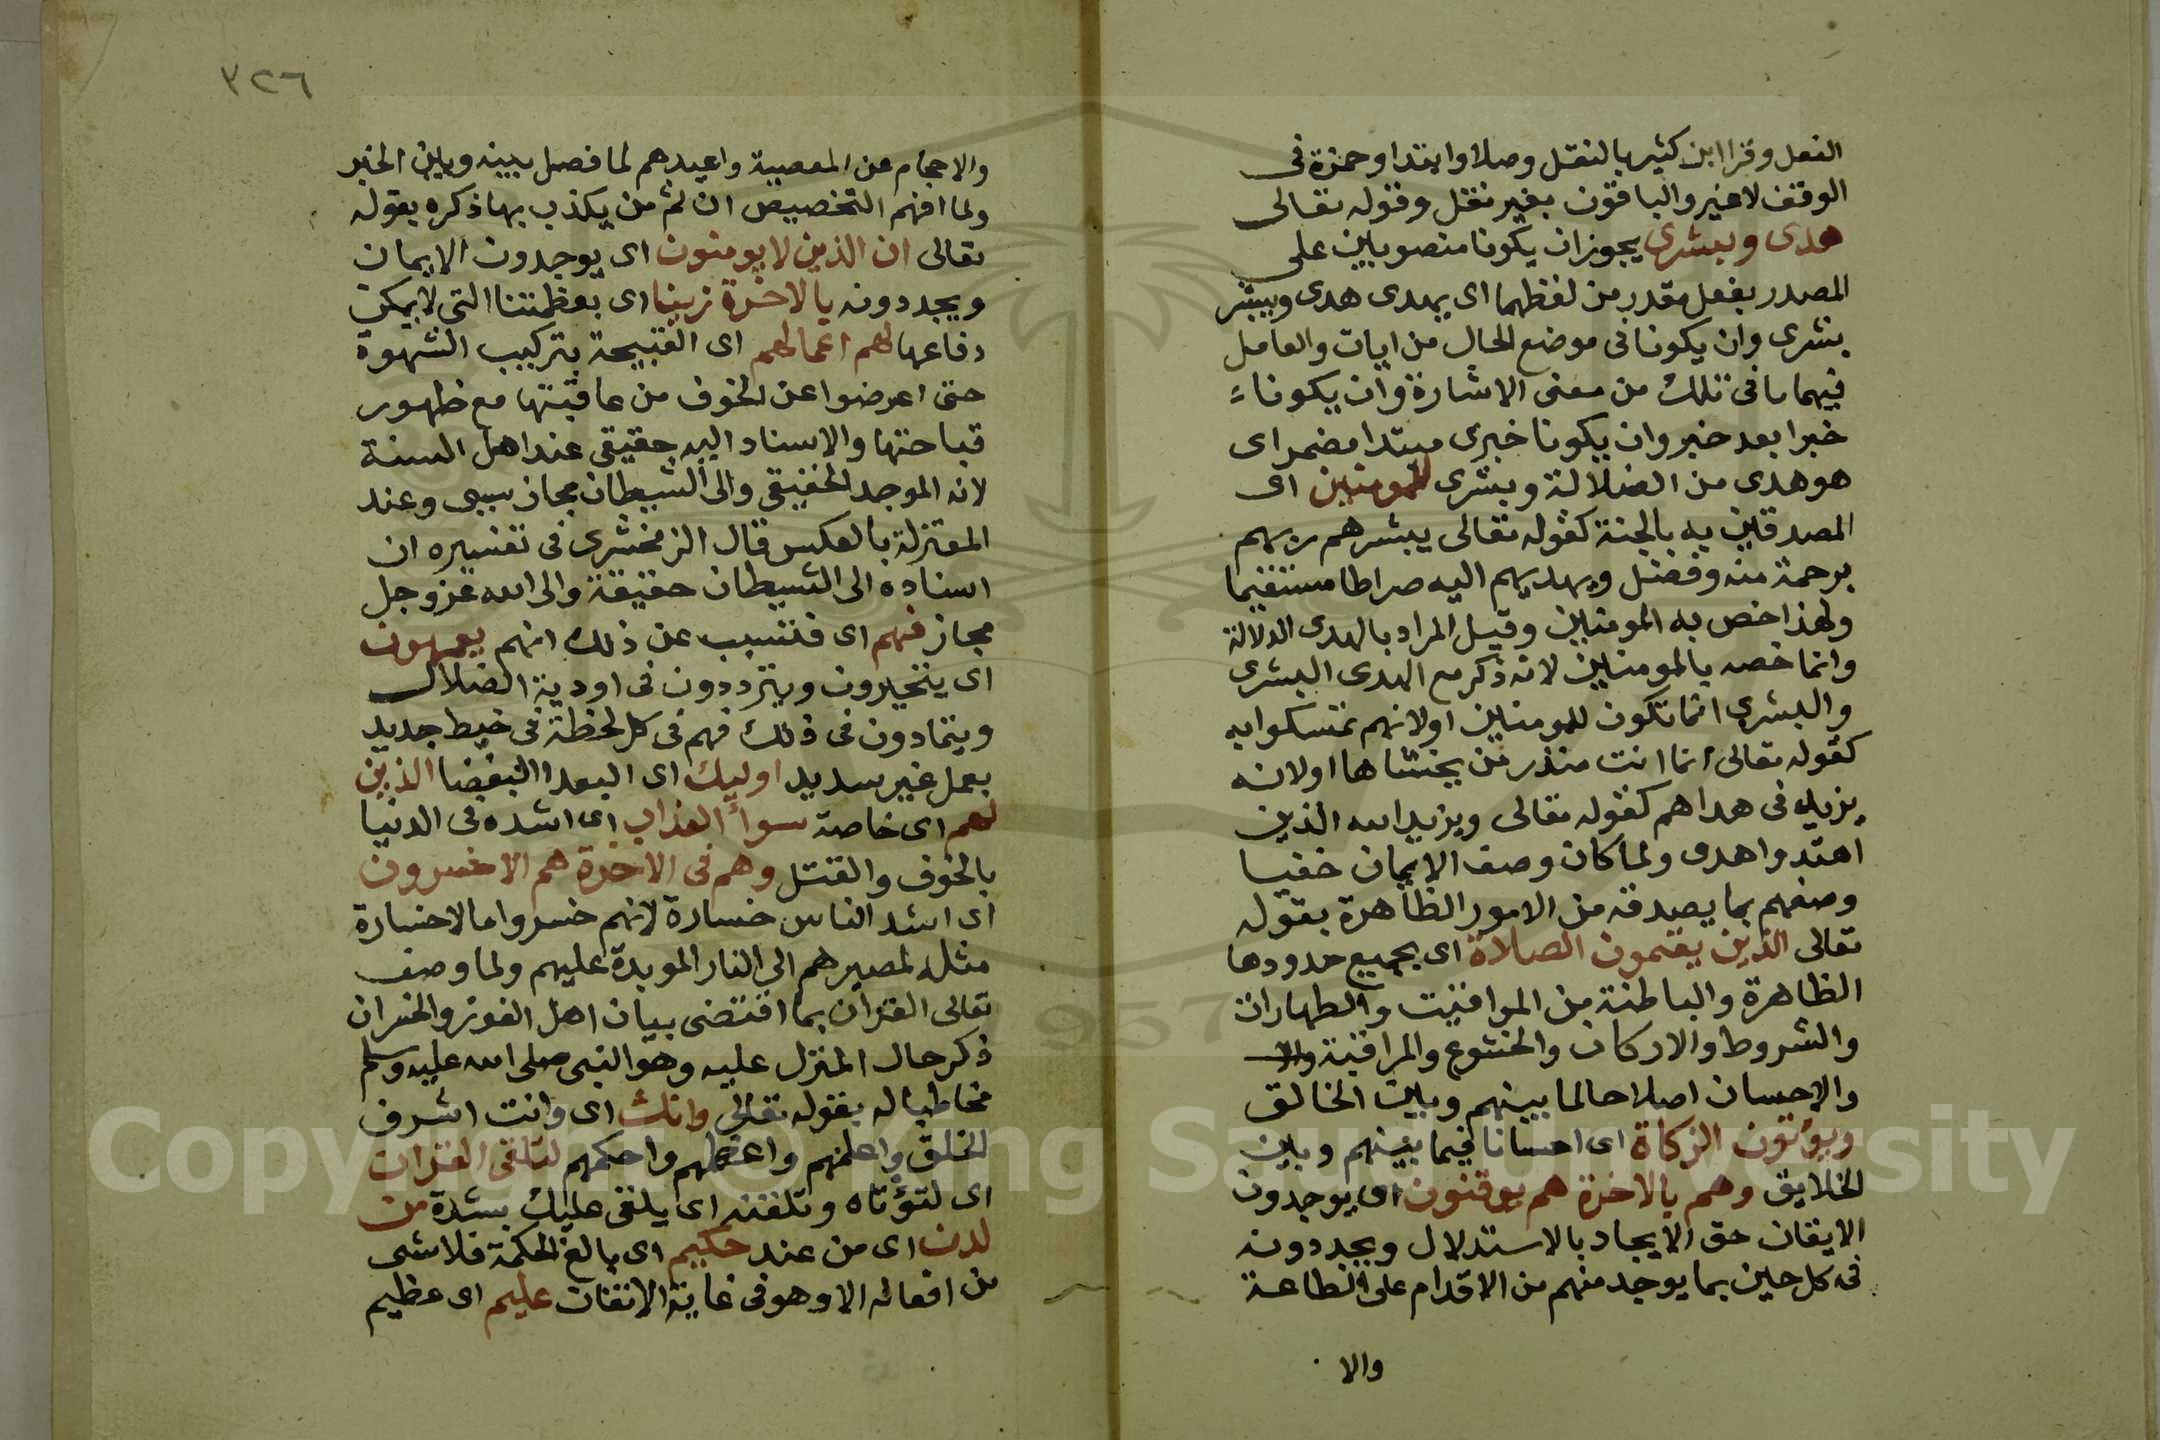 الفعل وقرا ابن كثير بالنقل وصلا وابتدا وحمزة فى
الوقف لا غير والباقون بغير نقل وقوله تعالى
هدى وبشرى يجوز ان يكونا منصوبين على
المصدر بفعل مقدر من لفظهما اى يهدى هدى ويبشر
بشرى وان يكونا فى موضع الحال من ايات والعامل
فيهما ما فى تلك من معنى الاشارة وان يكونا
خبرا بعد خبر وان يكونا خبرى مبتدا مضمر اى
هو هدى من الضلالة وبشرى للمومنين اى
المصدقين به بالجنة كقوله تعالى يبشرهم ربهم
برحمة منه وفضل ويهديهم اليه صراطا مستقيما
ولهذا خص به المومنين وقيل المراد بالهدى الدلالة
وانما خصه بالمومنين لانه ذكر مع الهدى البشرى
والبشرى انما تكون للمومنين او لانهم تمسكوا به
كقوله تعالى انما انت منذر من يخشاها او لانه
يزيد فى هداهم كقوله تعالى ويزيد الله الذين
اهتدوا هدى ولما كان وصف الايمان خفيا
وصفهم بما يصدقه من الامور الظاهرة بقوله
تعالى الذين يقيمون الصلاة اى بجميع حدودها
الظاهرة والباطنة من المواقيت والطهارات
والشروط والاركان والخشوع والمراقبة
والاحسان اصلاحا لما بينهم وبين الخالق
ويؤتون الزكاة اى احسانا فيما بينهم وبين
الخلايق وهم بالاخرة هم يوقنون اى يوجدون
الايقان حق الايجاد بالاستدلال ويجددونه
فى كل حين بما يوجد منهم من الاقدام على الطاعة
والا
٣٢٦
والاحجام عن المعصية واعيدهم لما فصل بينه وبين الخبر
ولما افهم التخصيص ان ثم من يكذب بها ذكره بقوله
تعالى ان الذين لا يومنون اى يوجدون الايمان
ويجددونه بالاخرة زينا اى بعظمتنا التى لا يمكن
دفاعها لهم اعمالهم اى القبيحة بتركيب الشهوة
حتى اعرضوا عن الخوف من عاقبتها مع ظهور
قباحتها والاسناد اليه حقيقى عند اهل السنة
لانه الموجد الحقيقى والى الشيطان مجاز سببى وعند
المعتزلة بالعكس قال الزمخشرى فى تفسيره ان
اسناده الى الشيطان حقيقة والى الله عز وجل
مجاز فهم اى فتسبب عن ذلك انهم يعمهون
اى يتحيرون ويترددون فى اودية الضلال
ويتمادون فى ذلك فهم فى كل لحظة فى خبط جديد
بعمل غير سديد اوليك اى البعدا البغضا الذين
لهم اى خاصة سوأ العذاب اى اشده فى الدنيا
بالخوف والقتل وهم فى الاخرة هم الاخسرون
اى اشد الناس خسارة لانهم خسروا ما لا خسارة
مثله لمصيرهم الى النار الموبدة عليهم ولما وصف
تعالى القران بما اقتضى بيان اهل الفوز والخسران
ذكر حال المنزل عليه وهو النبى صلى الله عليه وسلم
مخاطبا له بقوله تعالى وانك اى وانت اشرف
الخلق واعلمهم واعظمهم واحكمهم لتلقى القران
اى لتؤتاه وتلقنه اى يلقى عليك بشدة من
لدن اى من عند حكيم اى بالغ الحكمة فلا شى
من افعاله الا وهو فى غاية الاتقان عليم اى عظيم